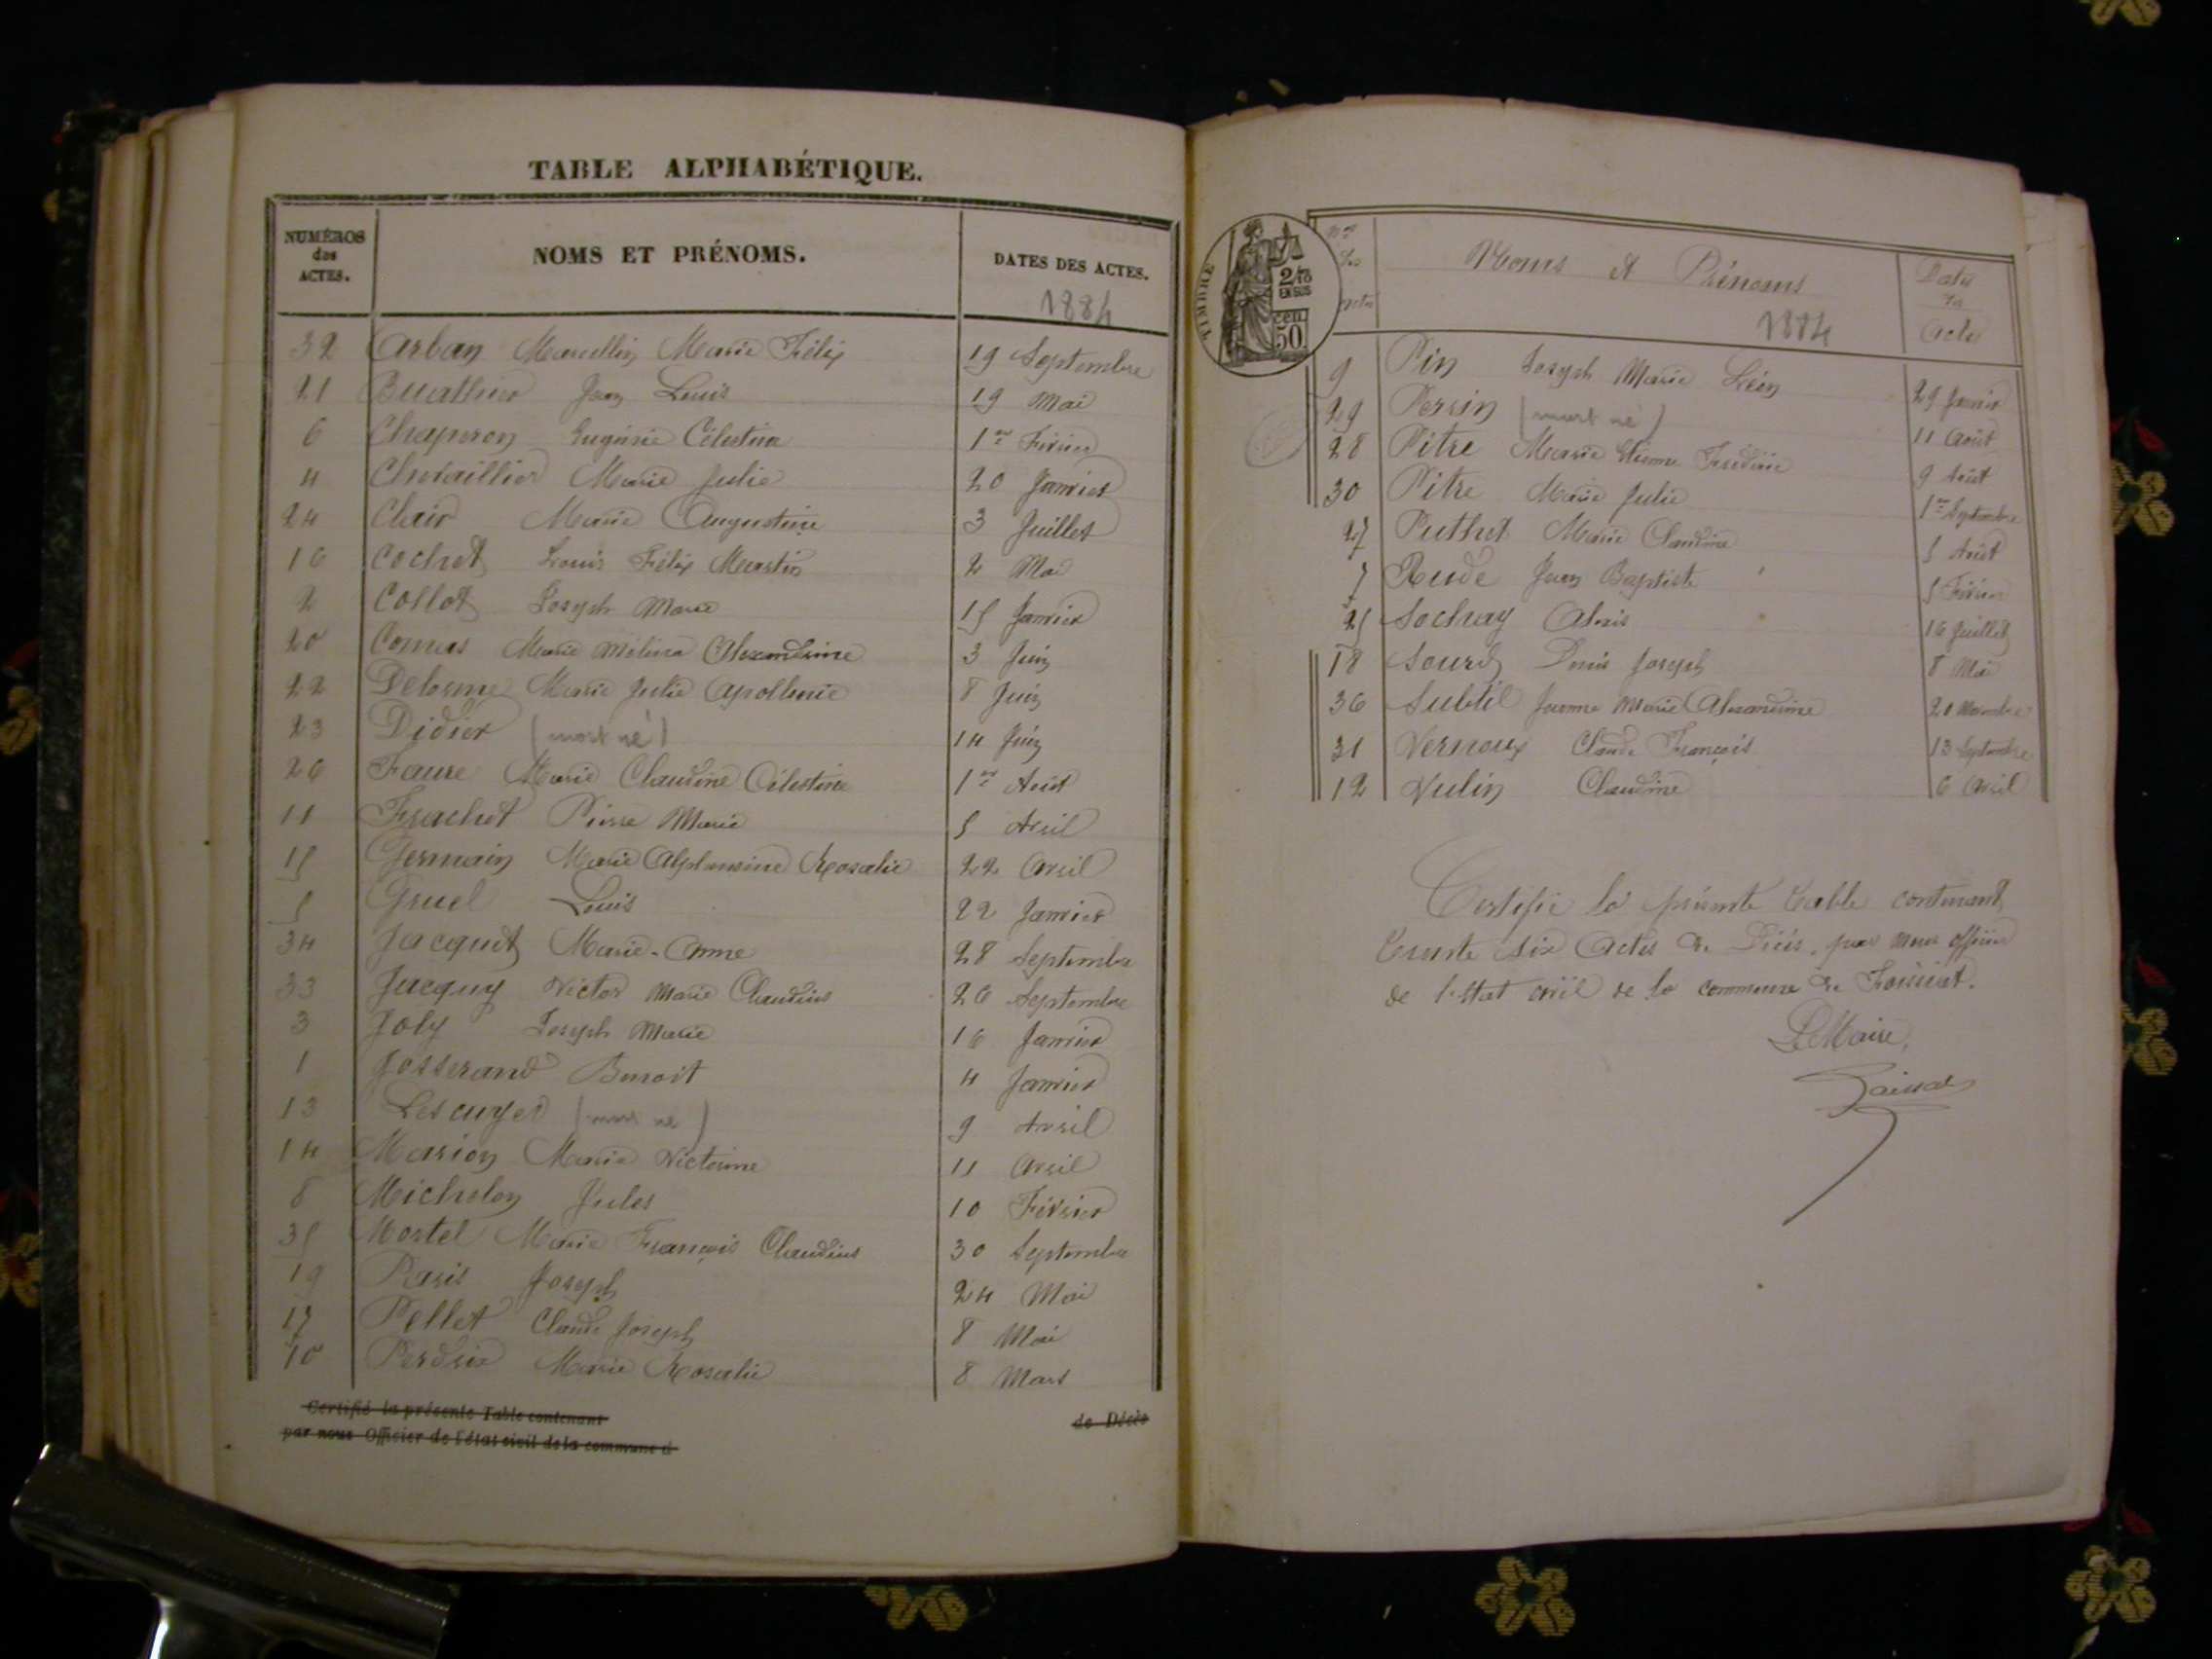 TABLE ALPHABÉTIQUE.
NUMÉROS des ACTES.
NOMS ET PRÉNOMS.
DATES DES ACTES.
1884
32 Arban Marcellin Marie Félix 19 Septembre
21 Buathier Jean Louis 19 Mai
6 Chapuron Eugénie Célestine 1er Février
4 Chevaillier Marie Julie 20 Janvier
24 Clair Marie Augustine 3 Juillet
16 Cochet Louis Félix Martin 2 Mai
2 Collot Joseph Marie 15 Janvier
20 Comas Marie Mélina Alexandrine 3 Juin
22 Delorme Marie Julie Apollonie 8 Juin
23 Didier (mort né) 14 Juin
26 Faure Marie Claudine Célestine 1er Août
11 Frachet Pierre Marie 5 Avril
15 Germain Marie Alphonsine Rosalie 22 Avril
5 Gruel Louis 22 Janvier
34 Jacquet Marie-Anne 28 Septembre
33 Jacquy Victor Marie Claudius 26 Septembre
3 Joly Joseph Marie 16 Janvier
1 Josserand Benoit 4 Janvier
13 Lescuyer (mort né) 9 Avril
14 Marion Marie Victorine 11 Avril
8 Michelon Jules 10 Février
35 Mortel Marie François Claudius 30 Septembre
19 Paris Joseph 24 Mai
17 Pellet Claude Joseph 8 Mai
10 Perdrix Marie Rosalie 8 Mars
Certifié la présente Table contenant de Décès
par nous Officier de l'état civil de la commune d
TIMBRE
2/10
EN SUS
50 cen.
Nos des actes
Noms et Prénoms
1884
Dates des Actes
9 Pin Joseph Marie Léon 29 Janvier
29 Perrin (mort né) 11 Août
28 Pitre Marie Etienne 9 Août
30 Pitre Marie Julie 1er Septembre
27 Puthet Marie Claudine 5 Août
7 Rude Jean Baptiste 5 Février
25 Sochay Alexis 16 Juillet
18 Sourd Denis Joseph 8 Mai
36 Subtil Jeanne Marie Alexandrine 20 Novembre
31 Vernoux Claude François 13 Septembre
12 Vulin Claudine 6 Avril
Certifié la présente Table contenant
trente six Actes de Décès, par nous officier
de l'état civil de la commune de Foissiat.
Le Maire,